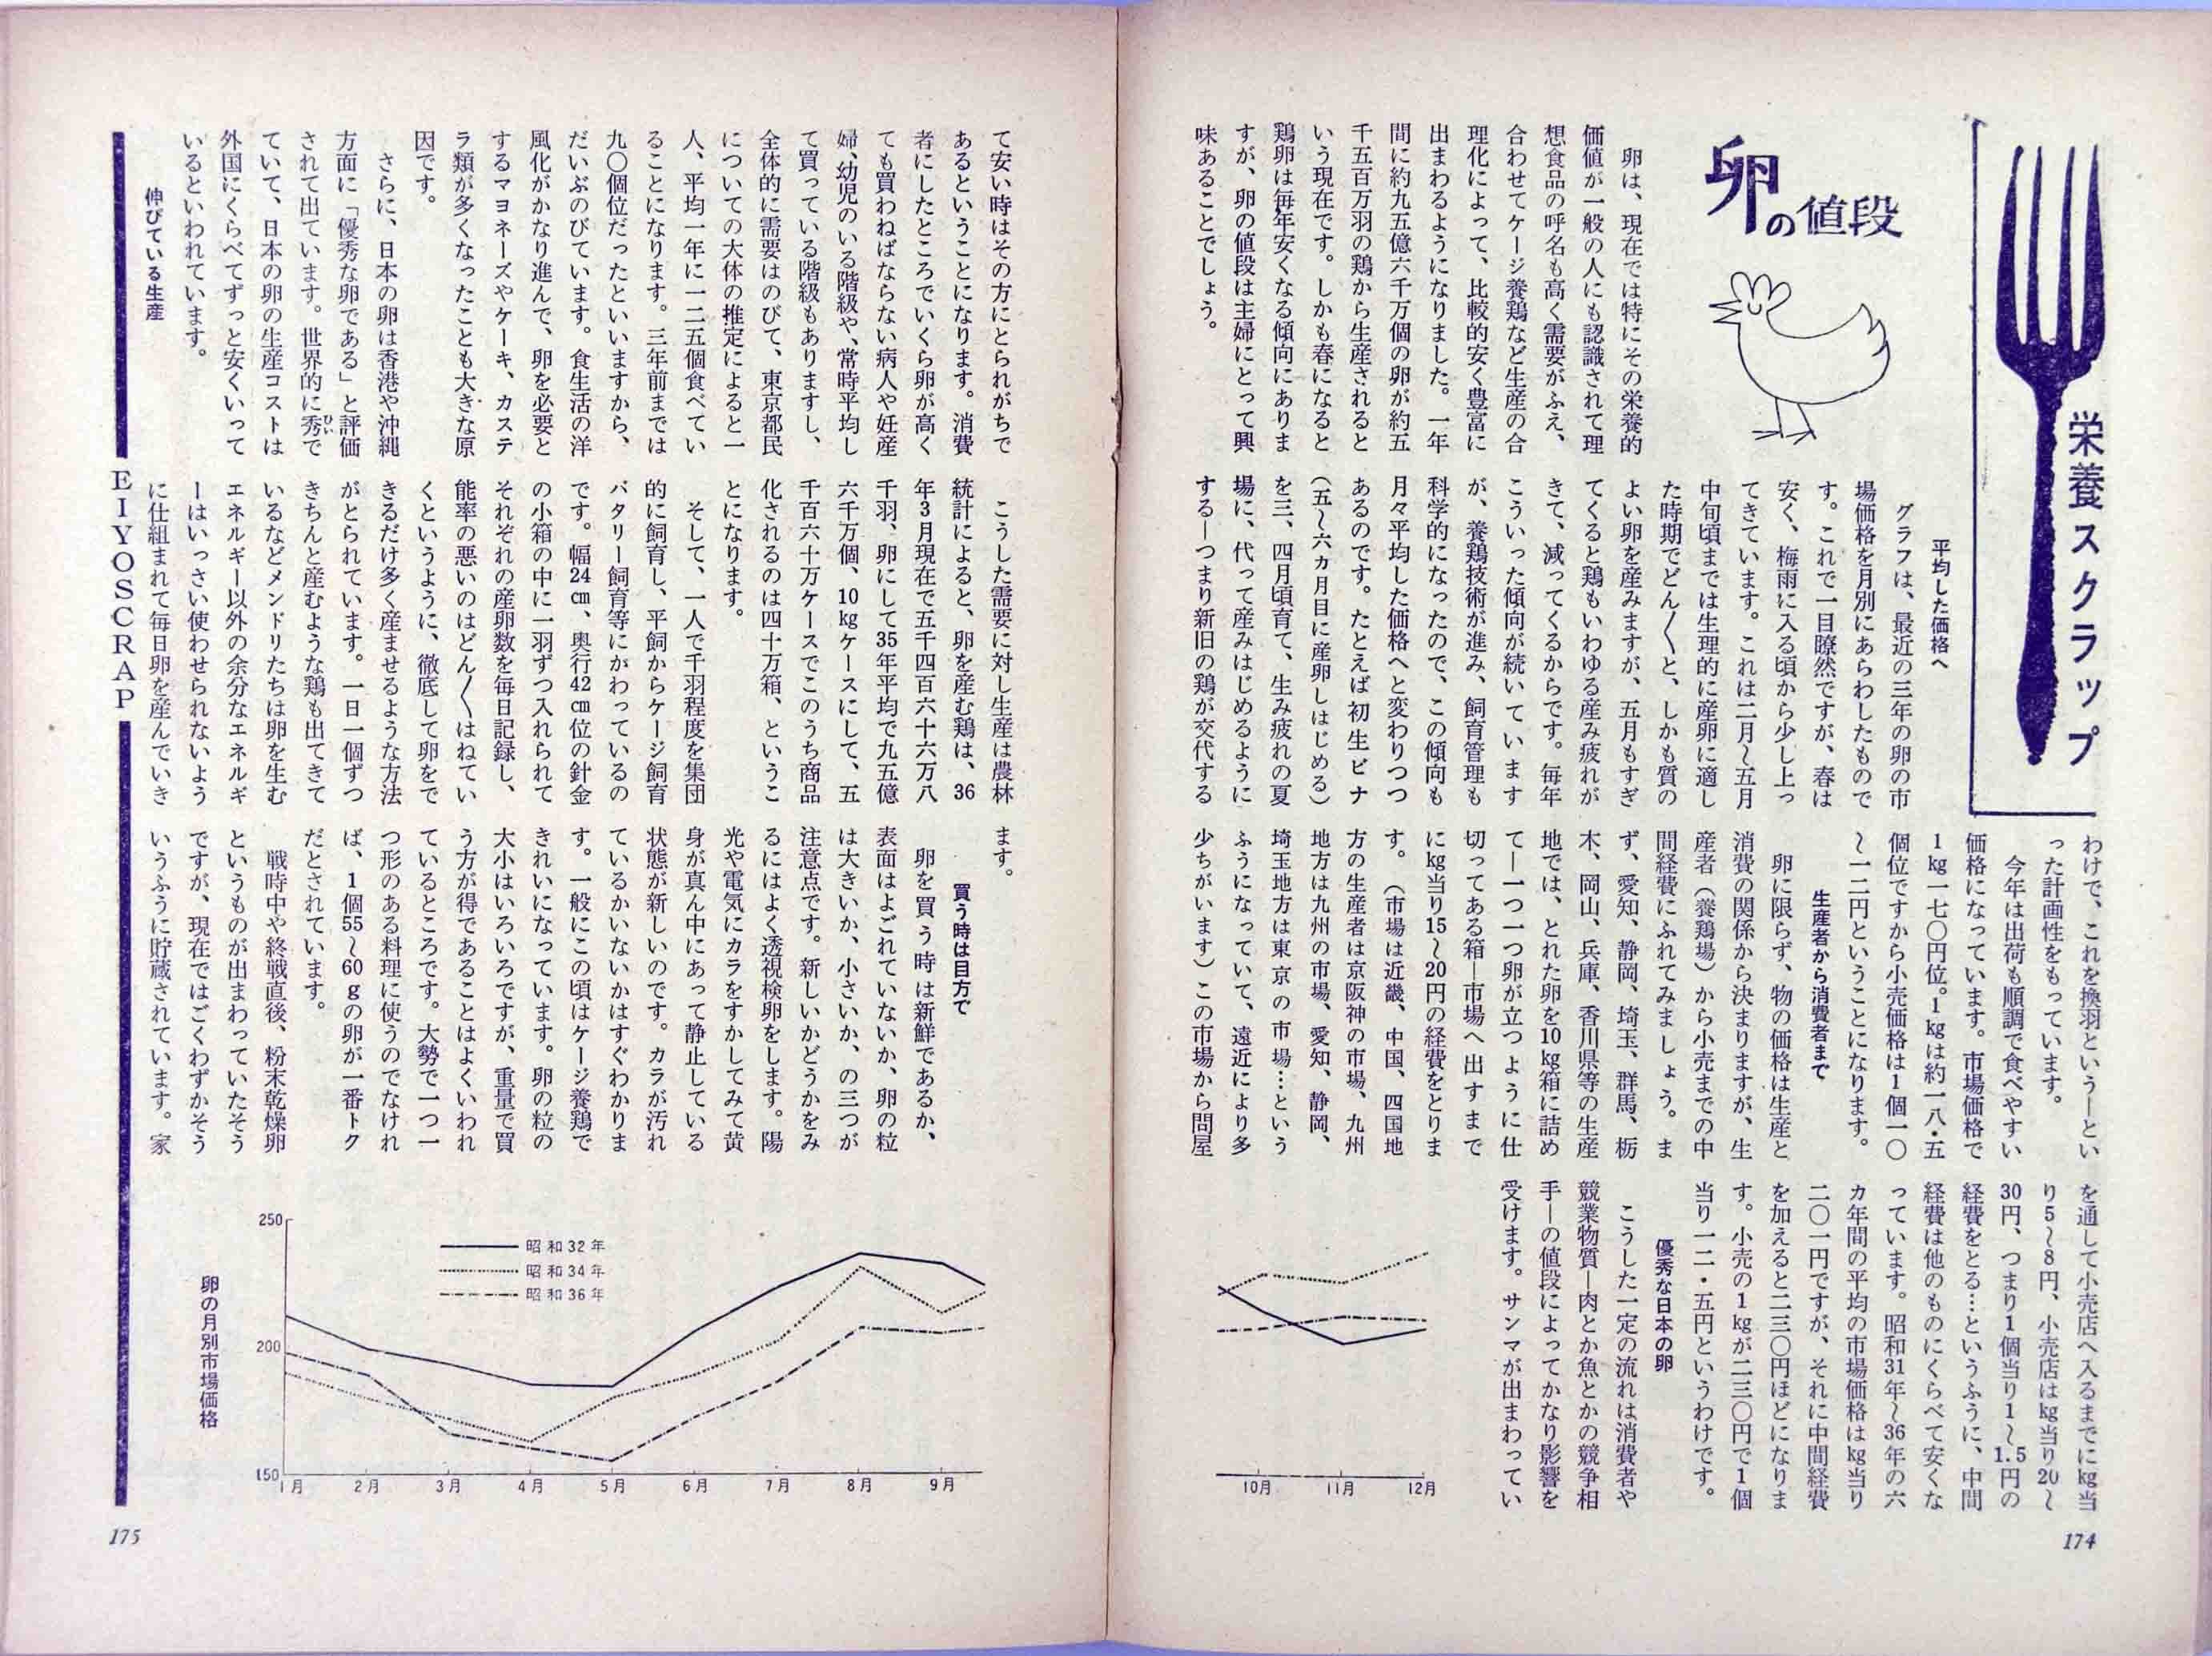 栄養スクラップ
卵の値段
卵は、現在では特にその栄養的
価値が一般の人にも認識されて理
想食品の呼名も高く需要がふえ、
合わせてケージ養鶏など生産の合
理化によって、比較的安く豊富に
出まわるようになりました。一年
間に約九五億六千万個の卵が約五
千五百万羽の鶏から生産されると
いう現在です。しかも春になると
鶏卵は毎年安くなる傾向にありま
すが、卵の値段は主婦にとって興
味あることでしょう。
平均した価格へ
グラフは、最近の三年の卵の市
場価格を月別にあらわしたもので
す。これで一目瞭然ですが、春は
安く、梅雨に入る頃から少し上っ
てきています。これは二月〜五月
中旬頃までは生理的に産卵に適し
た時期でどん〳〵と、しかも質の
よい卵を産みますが、五月もすぎ
てくると鶏もいわゆる産み疲れが
きて、減ってくるからです。毎年
こういった傾向が続いています
が、養鶏技術が進み、飼育管理も
科学的になったので、この傾向も
月々平均した価格へと変わりつつ
あるのです。たとえば初生ビナ
（五〜六ヵ月目に産卵しはじめる）
を三、四月頃育て、生み疲れの夏
場に、代って産みはじめるように
する—つまり新旧の鶏が交代する
わけで、これを換羽という—とい
った計画性をもっています。
今年は出荷も順調で食べやすい
価格になっています。市場価格で
1kg一七〇円位。1kgは約一八・五
個位ですから小売価格は1個一〇
〜一二円ということになります。
生産者から消費者まで
卵に限らず、物の価格は生産と
消費の関係から決まりますが、生
産者（養鶏場）から小売までの中
間経費にふれてみましょう。ま
ず、愛知、静岡、埼玉、群馬、栃
木、岡山、兵庫、香川県等の生産
地では、とれた卵を10kg箱に詰め
て—一つ一つ卵が立つように仕
切ってある箱—市場へ出すまで
にkg当り15〜20円の経費をとりま
す。（市場は近畿、中国、四国地
方の生産者は京阪神の市場、九州
地方は九州の市場、愛知、静岡、
埼玉地方は東京の市場…という
ふうになっていて、遠近により多
少ちがいます）この市場から問屋
を通して小売店へ入るまでにkg当
り5〜8円、小売店はkg当り20〜
30円、つまり1個当り1〜1.5円の
経費をとる…というふうに、中間
経費は他のものにくらべて安くな
っています。昭和31年〜36年の六
カ年間の平均の市場価格はkg当り
二〇一円ですが、それに中間経費
を加えると二三〇円ほどになりま
す。小売の1kgが二三〇円で1個
当り一二・五円というわけです。
優秀な日本の卵
こうした一定の流れは消費者や
競業物質—肉とか魚とかの競争相
手—の値段によってかなり影響を
受けます。サンマが出まわってい
10月 11月 12月
174
て安い時はその方にとられがちで
あるということになります。消費
者にしたところでいくら卵が高く
ても買わねばならない病人や妊産
婦、幼児のいる階級や、常時平均し
て買っている階級もありますし、
全体的に需要はのびて、東京都民
についての大体の推定によると一
人、平均一年に一二五個食べてい
ることになります。三年前までは
九〇個位だったといいますから、
だいぶのびています。食生活の洋
風化がかなり進んで、卵を必要と
するマヨネーズやケーキ、カステ
ラ類が多くなったことも大きな原
因です。
さらに、日本の卵は香港や沖縄
方面に「優秀な卵である」と評価
されて出ています。世界的に秀（ひい）で
ていて、日本の卵の生産コストは
外国にくらべてずっと安くいって
いるといわれています。
伸びている生産
こうした需要に対し生産は農林
統計によると、卵を産む鶏は、36
年3月現在で五千四百六十六万八
千羽、卵にして35年平均で九五億
六千万個、10kgケースにして、五
千百六十万ケースでこのうち商品
化されるのは四十万箱、というこ
とになります。
そして、一人で千羽程度を集団
的に飼育し、平飼からケージ飼育
バタリー飼育等にかわっているの
です。幅24cm、奥行42cm位の針金
の小箱の中に一羽ずつ入れられて
それぞれの産卵数を毎日記録し、
能率の悪いのはどん〳〵はねてい
くというように、徹底して卵をで
きるだけ多く産ませるような方法
がとられています。一日一個ずつ
きちんと産むような鶏も出てきて
いるなどメンドリたちは卵を生む
エネルギー以外の余分なエネルギ
ーはいっさい使わせられないよう
に仕組まれて毎日卵を産んでいき
ます。
買う時は目方で
卵を買う時は新鮮であるか、
表面はよごれていないか、卵の粒
は大きいか、小さいか、の三つが
注意点です。新しいかどうかをみ
るにはよく透視検卵をします。陽
光や電気にカラをすかしてみて黄
身が真ん中にあって静止している
状態が新しいのです。カラが汚れ
ているかいないかはすぐわかりま
す。一般にこの頃はケージ養鶏で
きれいになっています。卵の粒の
大小はいろいろですが、重量で買
う方が得であることはよくいわれ
ているところです。大勢で一つ一
つ形のある料理に使うのでなけれ
ば、1個55〜60gの卵が一番トク
だとされています。
戦時中や終戦直後、粉末乾燥卵
というものが出まわっていたそう
ですが、現在ではごくわずかそう
いうふうに貯蔵されています。家
EIYOSCRAP
卵の月別市場価格
250
200
150
昭和32年
昭和34年
昭和36年
1月 2月 3月 4月 5月 6月 7月 8月 9月
175